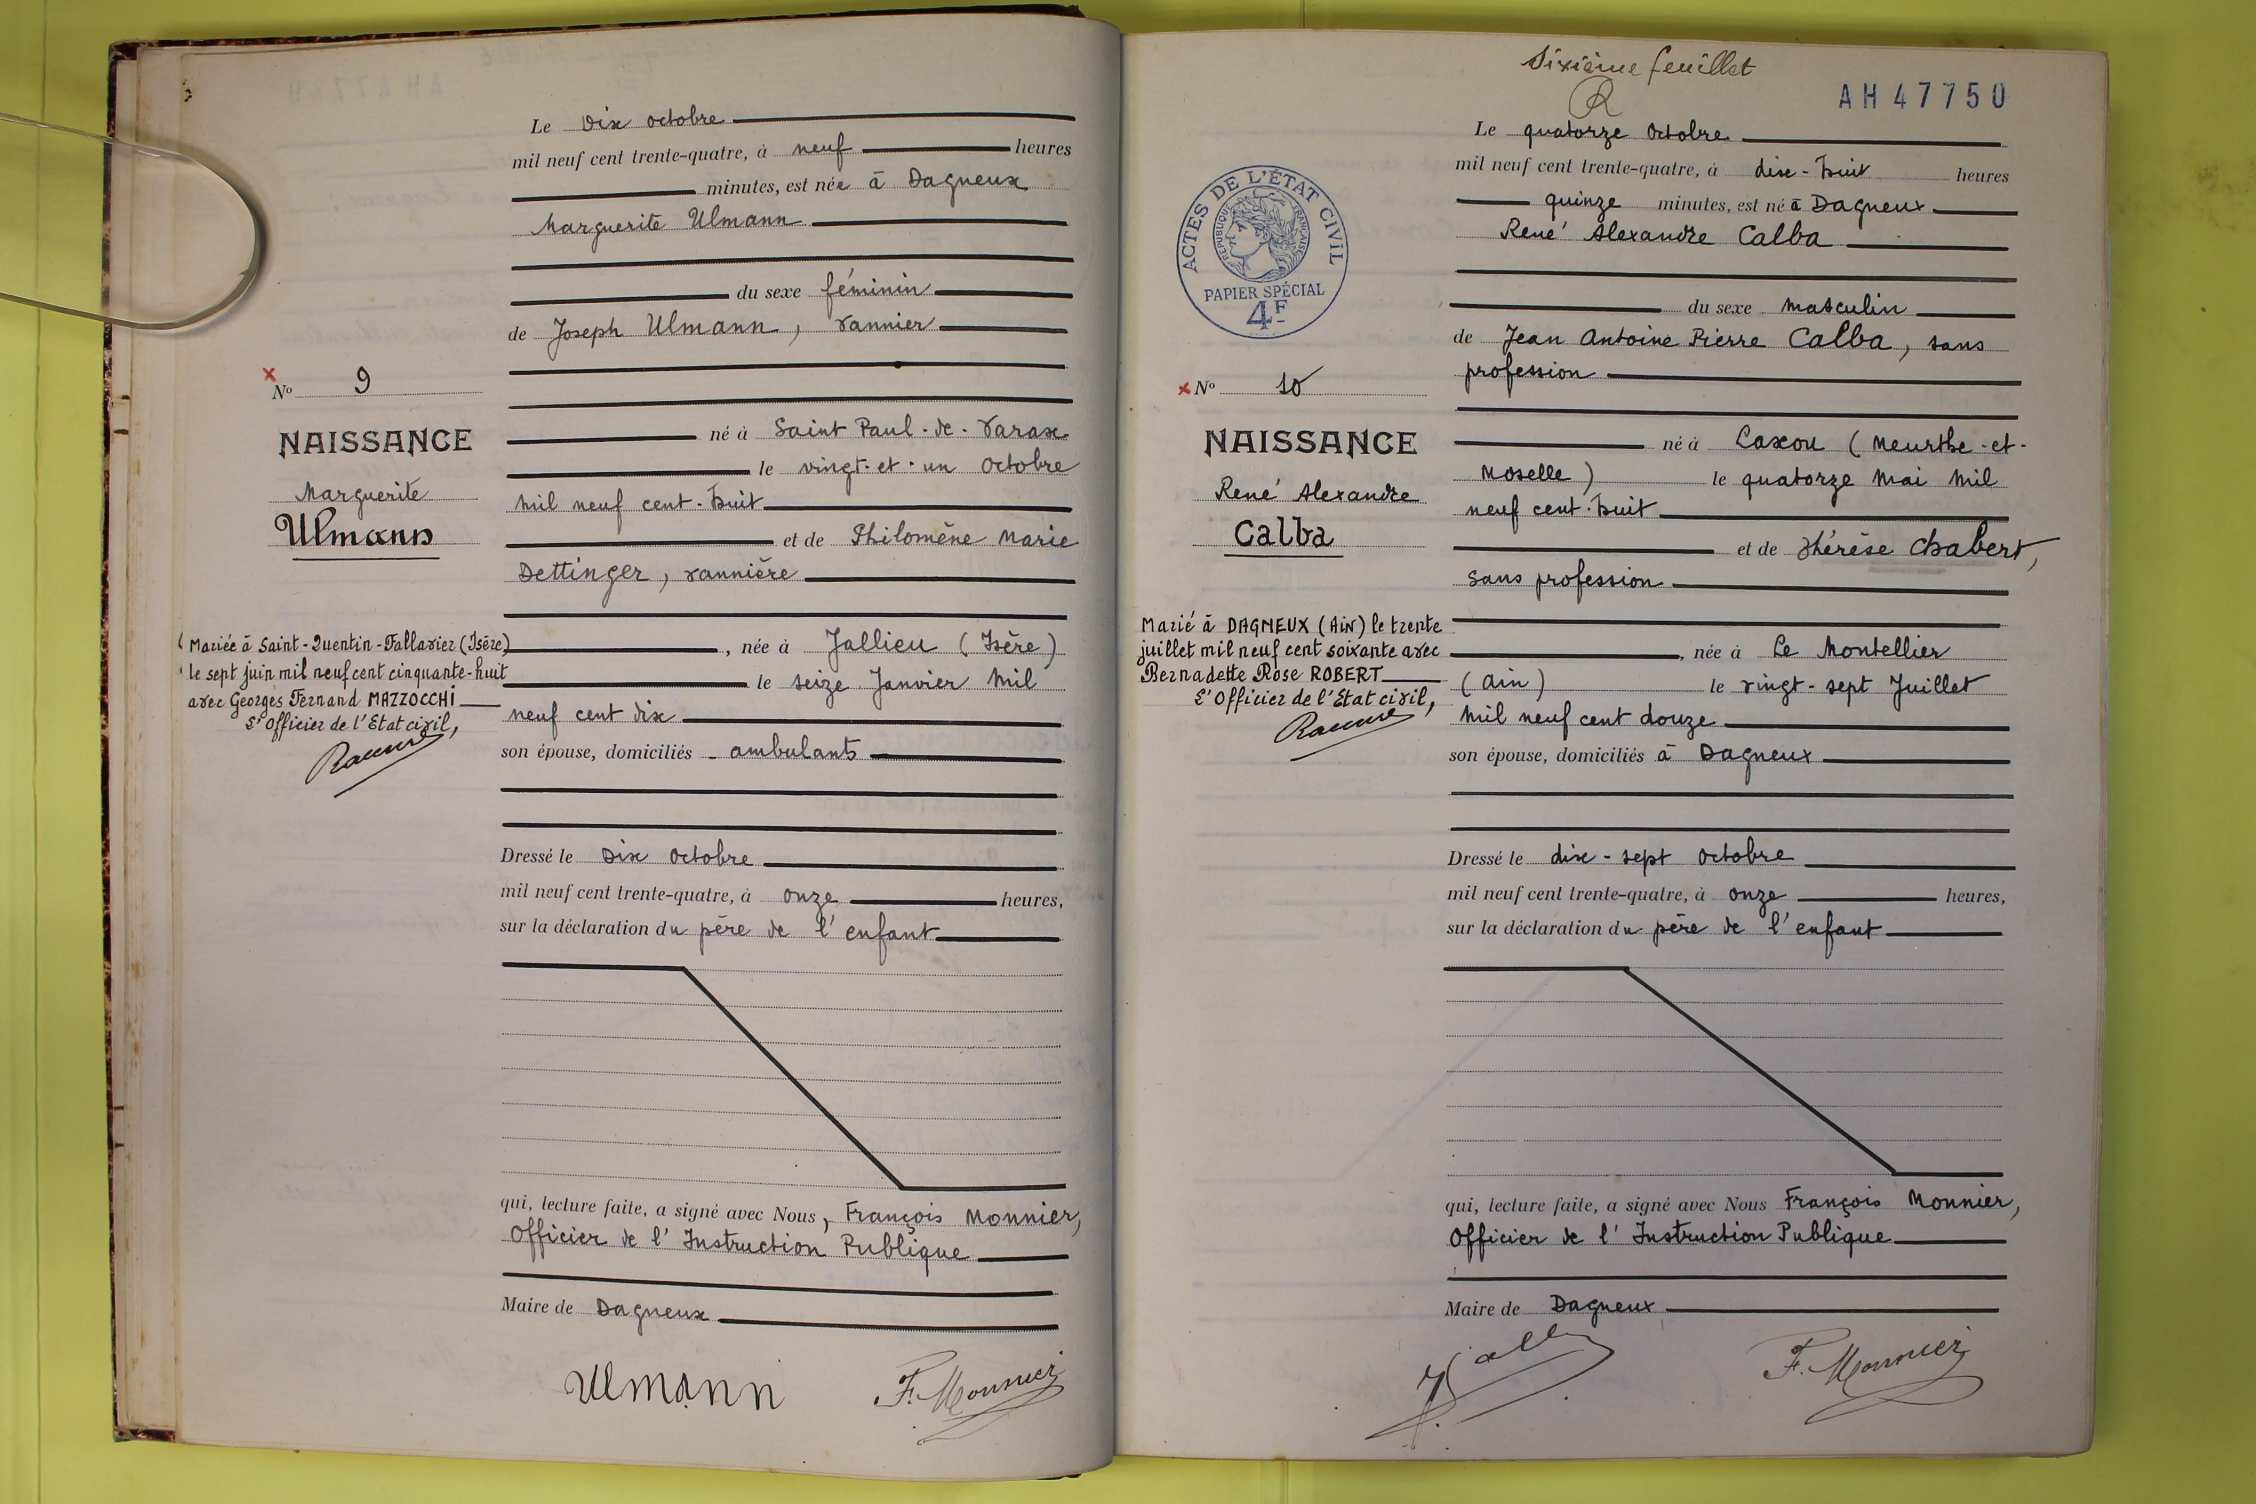 Le dix octobre
mil neuf cent trente-quatre, à neuf heures
minutes, est née à Dagneux
Marguerite Ulmann
du sexe féminin
de Joseph Ulmann, vannier
né à Saint Paul-de-Varax
le vingt-et-un octobre
mil neuf cent-huit
et de Philomène Marie
Dettinger, vannière
, née à Jallieu (Isère)
le seize Janvier mil
neuf cent dix
son épouse, domiciliés - ambulants
Dressé le dix octobre
mil neuf cent trente-quatre, à onze heures,
sur la déclaration du père de l'enfant
qui, lecture faite, a signé avec Nous, François Monnier,
Officier de l'Instruction Publique
Maire de Dagneux
Ulmann F. Monnier
No 9
NAISSANCE
Marguerite
Ulmann
Mariée à Saint-Quentin-Fallavier (Isère)
le sept juin mil neuf cent cinquante-huit
avec Georges Fernand MAZZOCCHI
L'Officier de l'Etat civil,
Sixième feuillet
AH47750
Le quatorze octobre
mil neuf cent trente-quatre, à dix-huit heures
quinze minutes, est né à Dagneux
René Alexandre Calba
du sexe masculin
de Jean Antoine Pierre Calba, sans
profession
né à Laxou (Meurthe-et-
Moselle) le quatorze mai mil
neuf cent-huit
et de Thérèse Chabert,
sans profession
, née à Le Montellier
(Ain) le vingt-sept Juillet
mil neuf cent douze
son épouse, domiciliés à Dagneux
Dressé le dix-sept octobre
mil neuf cent trente-quatre, à onze heures,
sur la déclaration du père de l'enfant
qui, lecture faite, a signé avec Nous François Monnier,
Officier de l'Instruction Publique
Maire de Dagneux
F. Monnier
ACTES DE L'ÉTAT CIVIL
RÉPUBLIQUE FRANÇAISE
PAPIER SPÉCIAL
4F
No 10
NAISSANCE
René Alexandre
Calba
Marié à DAGNEUX (Ain) le trente
juillet mil neuf cent soixante avec
Bernadette Rose ROBERT
L'Officier de l'Etat civil,